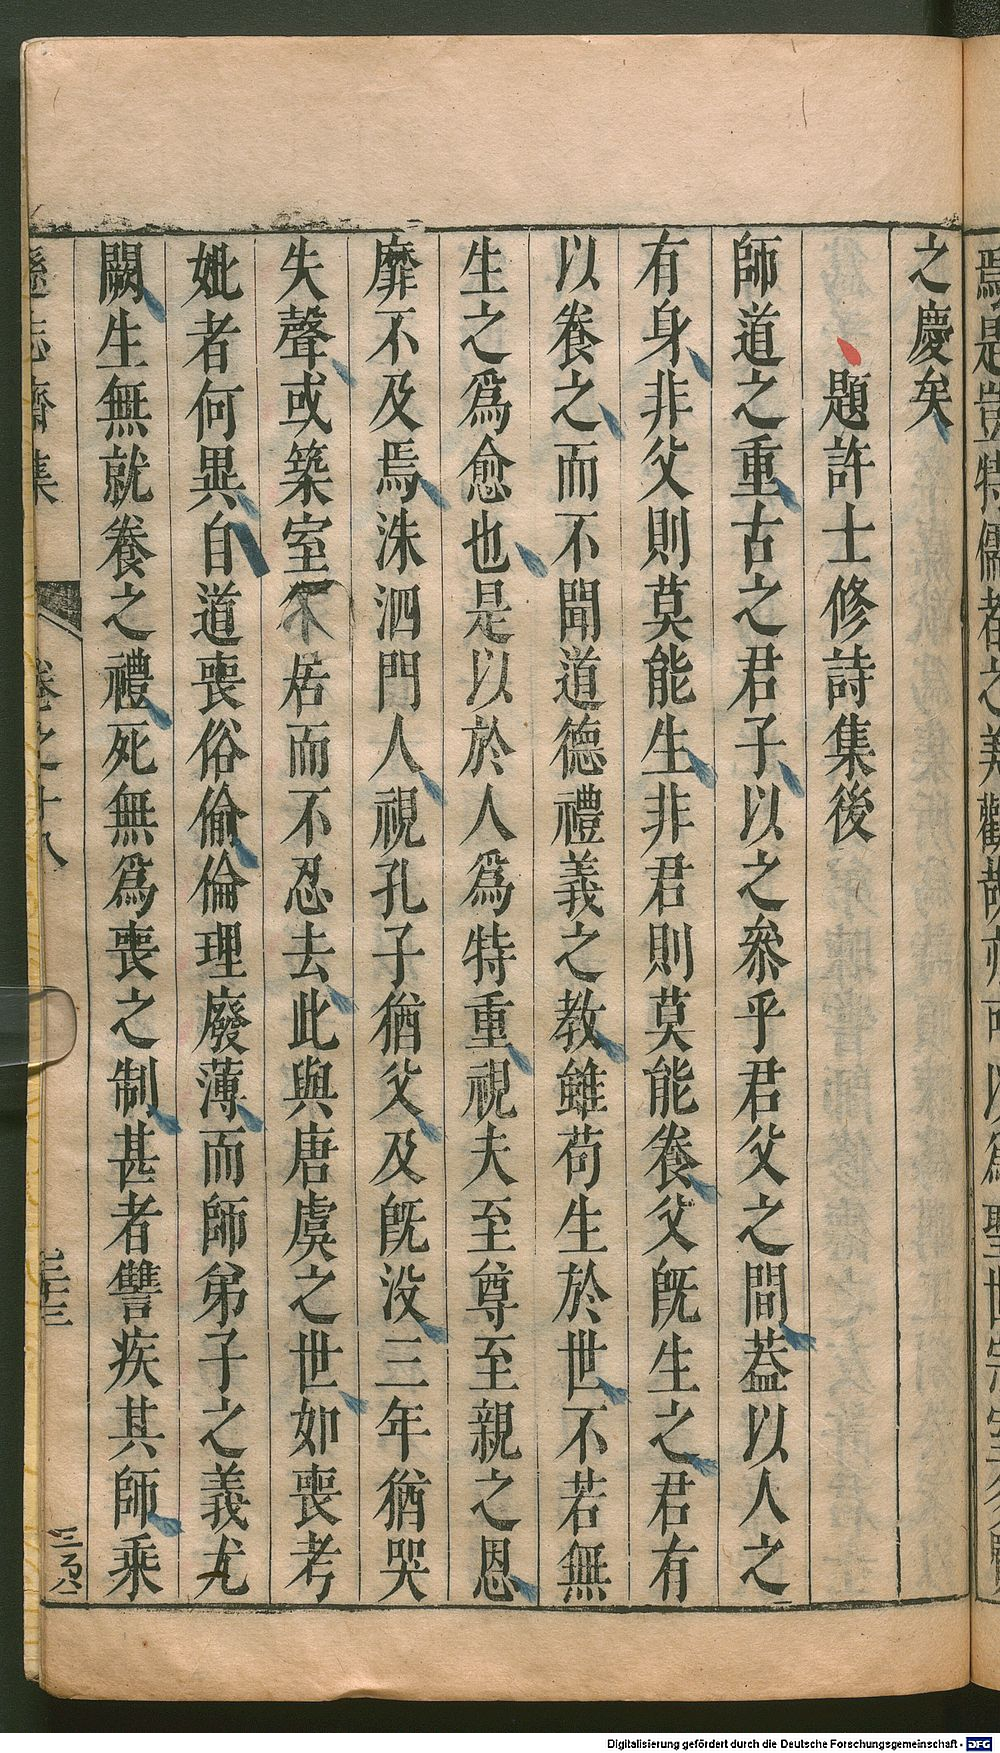 之慶矣
題許士修詩集後
師道之重古之君子以之叅乎君父之間葢以人之
有身非父則莫能生非君則莫能養父旣生之君有
以養之而不聞道德禮義之教雖苟生於世不若無
生之爲愈也是以於人爲特重視夫至尊至親之恩
靡不及焉洙泗門人視孔子猶父及旣没三年猶哭
失聲或築室不居而不忍去此與唐虞之世如喪考
妣者何異自道喪俗偷倫理廢薄而師弟子之義尤
闕生無就養之禮死無爲喪之制甚者讐疾其師乘
遜志齋集
卷之十八
三十三
三百八
Digitalisierung gefördert durch die Deutsche Forschungsgemeinschaft - DFG